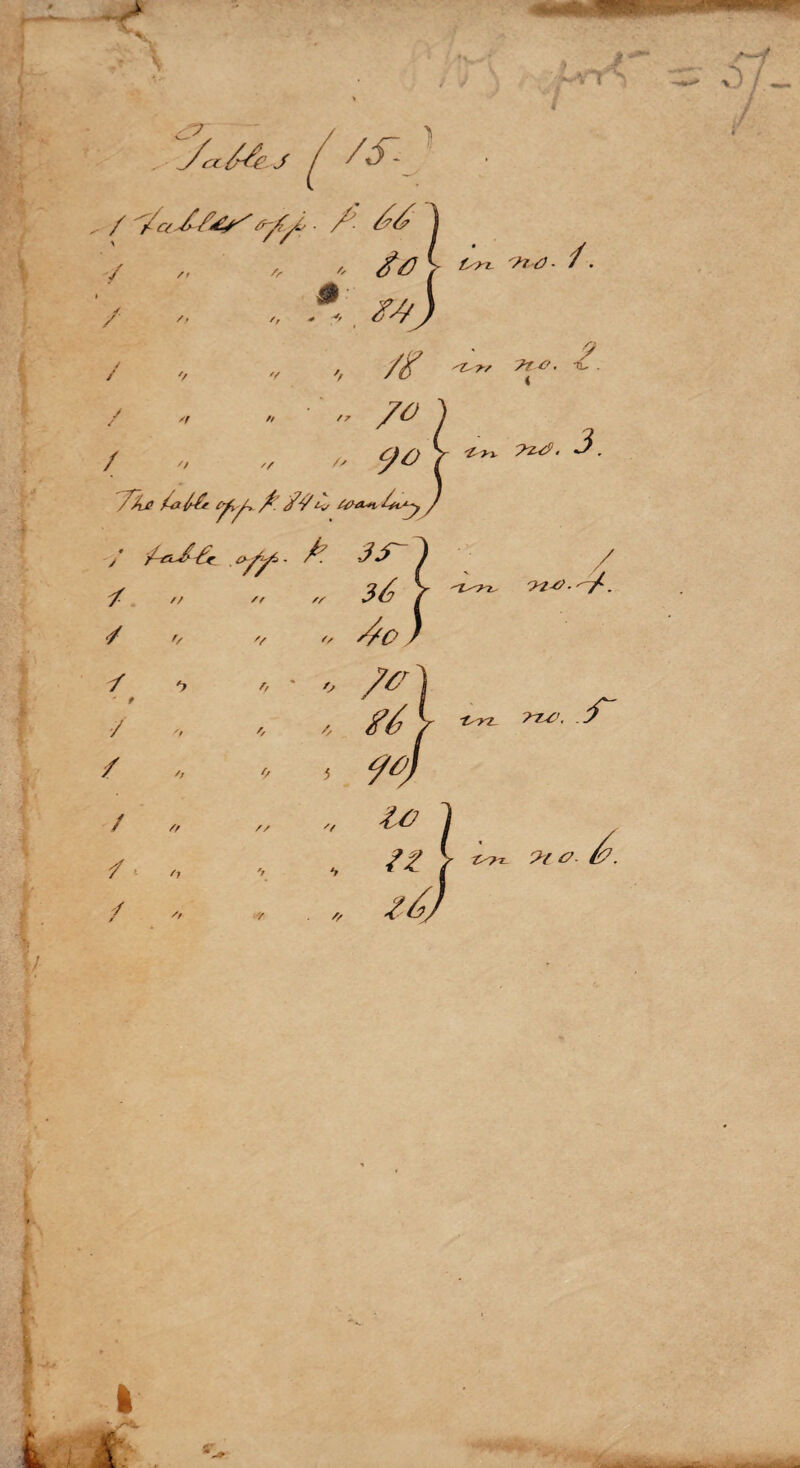 = 5/-
Tables (15.)
1 Table opp. p. 66
1 " " " 80 } in no. 1.
1 " " " 84
1 " " " 18 in no. 2.
1 " " " 70
1 " " " 90 } in no. 3.
The table opp. p. 34 is wanting
1 table opp. p. 35
1 " " " 36 } in no. 4.
1 " " " 40
1 " " " 70
1 " " " 86 } in no. 5
1 " " " 90
1 " " " 20
1 " " " 22 } in no. 6.
1 " " " 26